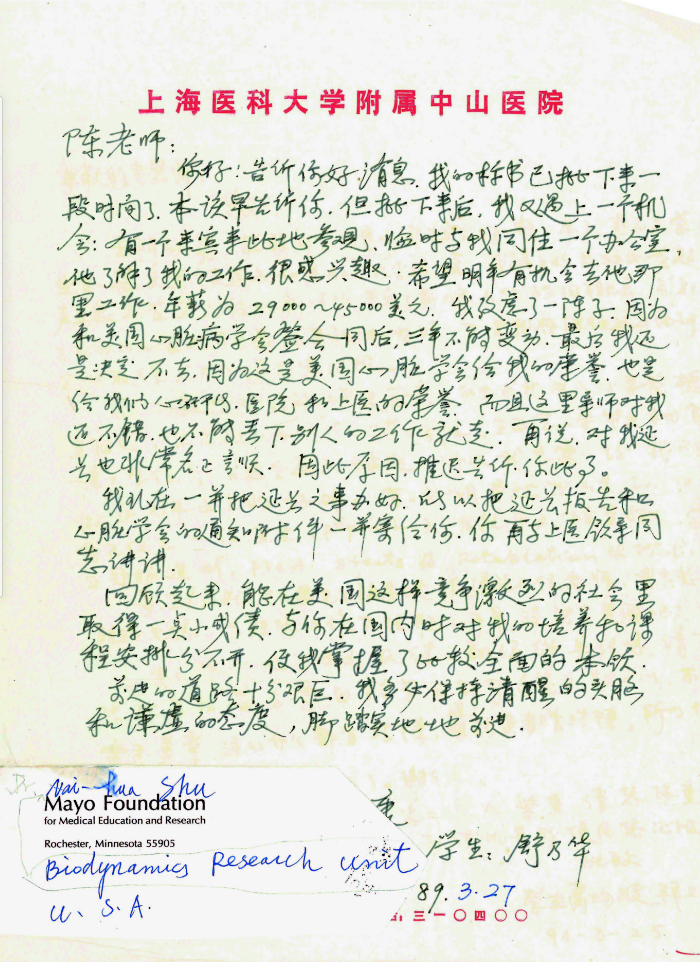 上海医科大学附属中山医院
陈老师:
你好!告诉你好消息,我的标书已批下来一
段时间了.本该早告诉你,但批下来后,我又遇上一个机
会:有一个来宾来此地参观、临时与我同住一个办公室,
他了解了我的工作.很感兴趣.希望明年有机会去他那
里工作.年薪为29000~45000美元.我考虑了一阵子.因为
和美国心脏病学会签合同后,三年不能变动.最后我还
是决定不去.因为这是美国心脏学会给我的荣誉.也是
给我们 医院和上医的荣誉.而且这里导师对我
还不错.也不能丢下别人的工作就走.再说.对我延
长也非常名正言顺.因此原因,推迟告诉你此事。
我现在一并把延长之事办好.所以把延长报告和
心脏学会的通知附件一并寄给你.你再与上医领导同
志讲讲.
回顾起来,能在美国这样竞争激烈的社会里
取得一点小成绩.与你在国内时对我的培养和课
程安排分不开.使我掌握了比较全面的本领.
前进的道路十分艰巨.我要保持清醒的头脑
和谦虚的态度,脚踏实地地前进.
Dr. Nai-hua Shu
Mayo Foundation
for Medical Education and Research
Rochester, Minnesota 55905
Biodynamics Research Unit
U.S.A.
学生:舒乃华
89.3.27
三一〇四〇〇